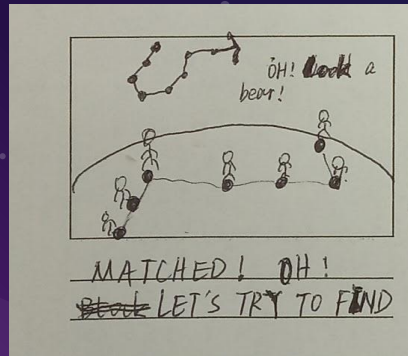 OH! Look a
bear!
MATCHED! OH!
Black LET'S TRY TO FIND